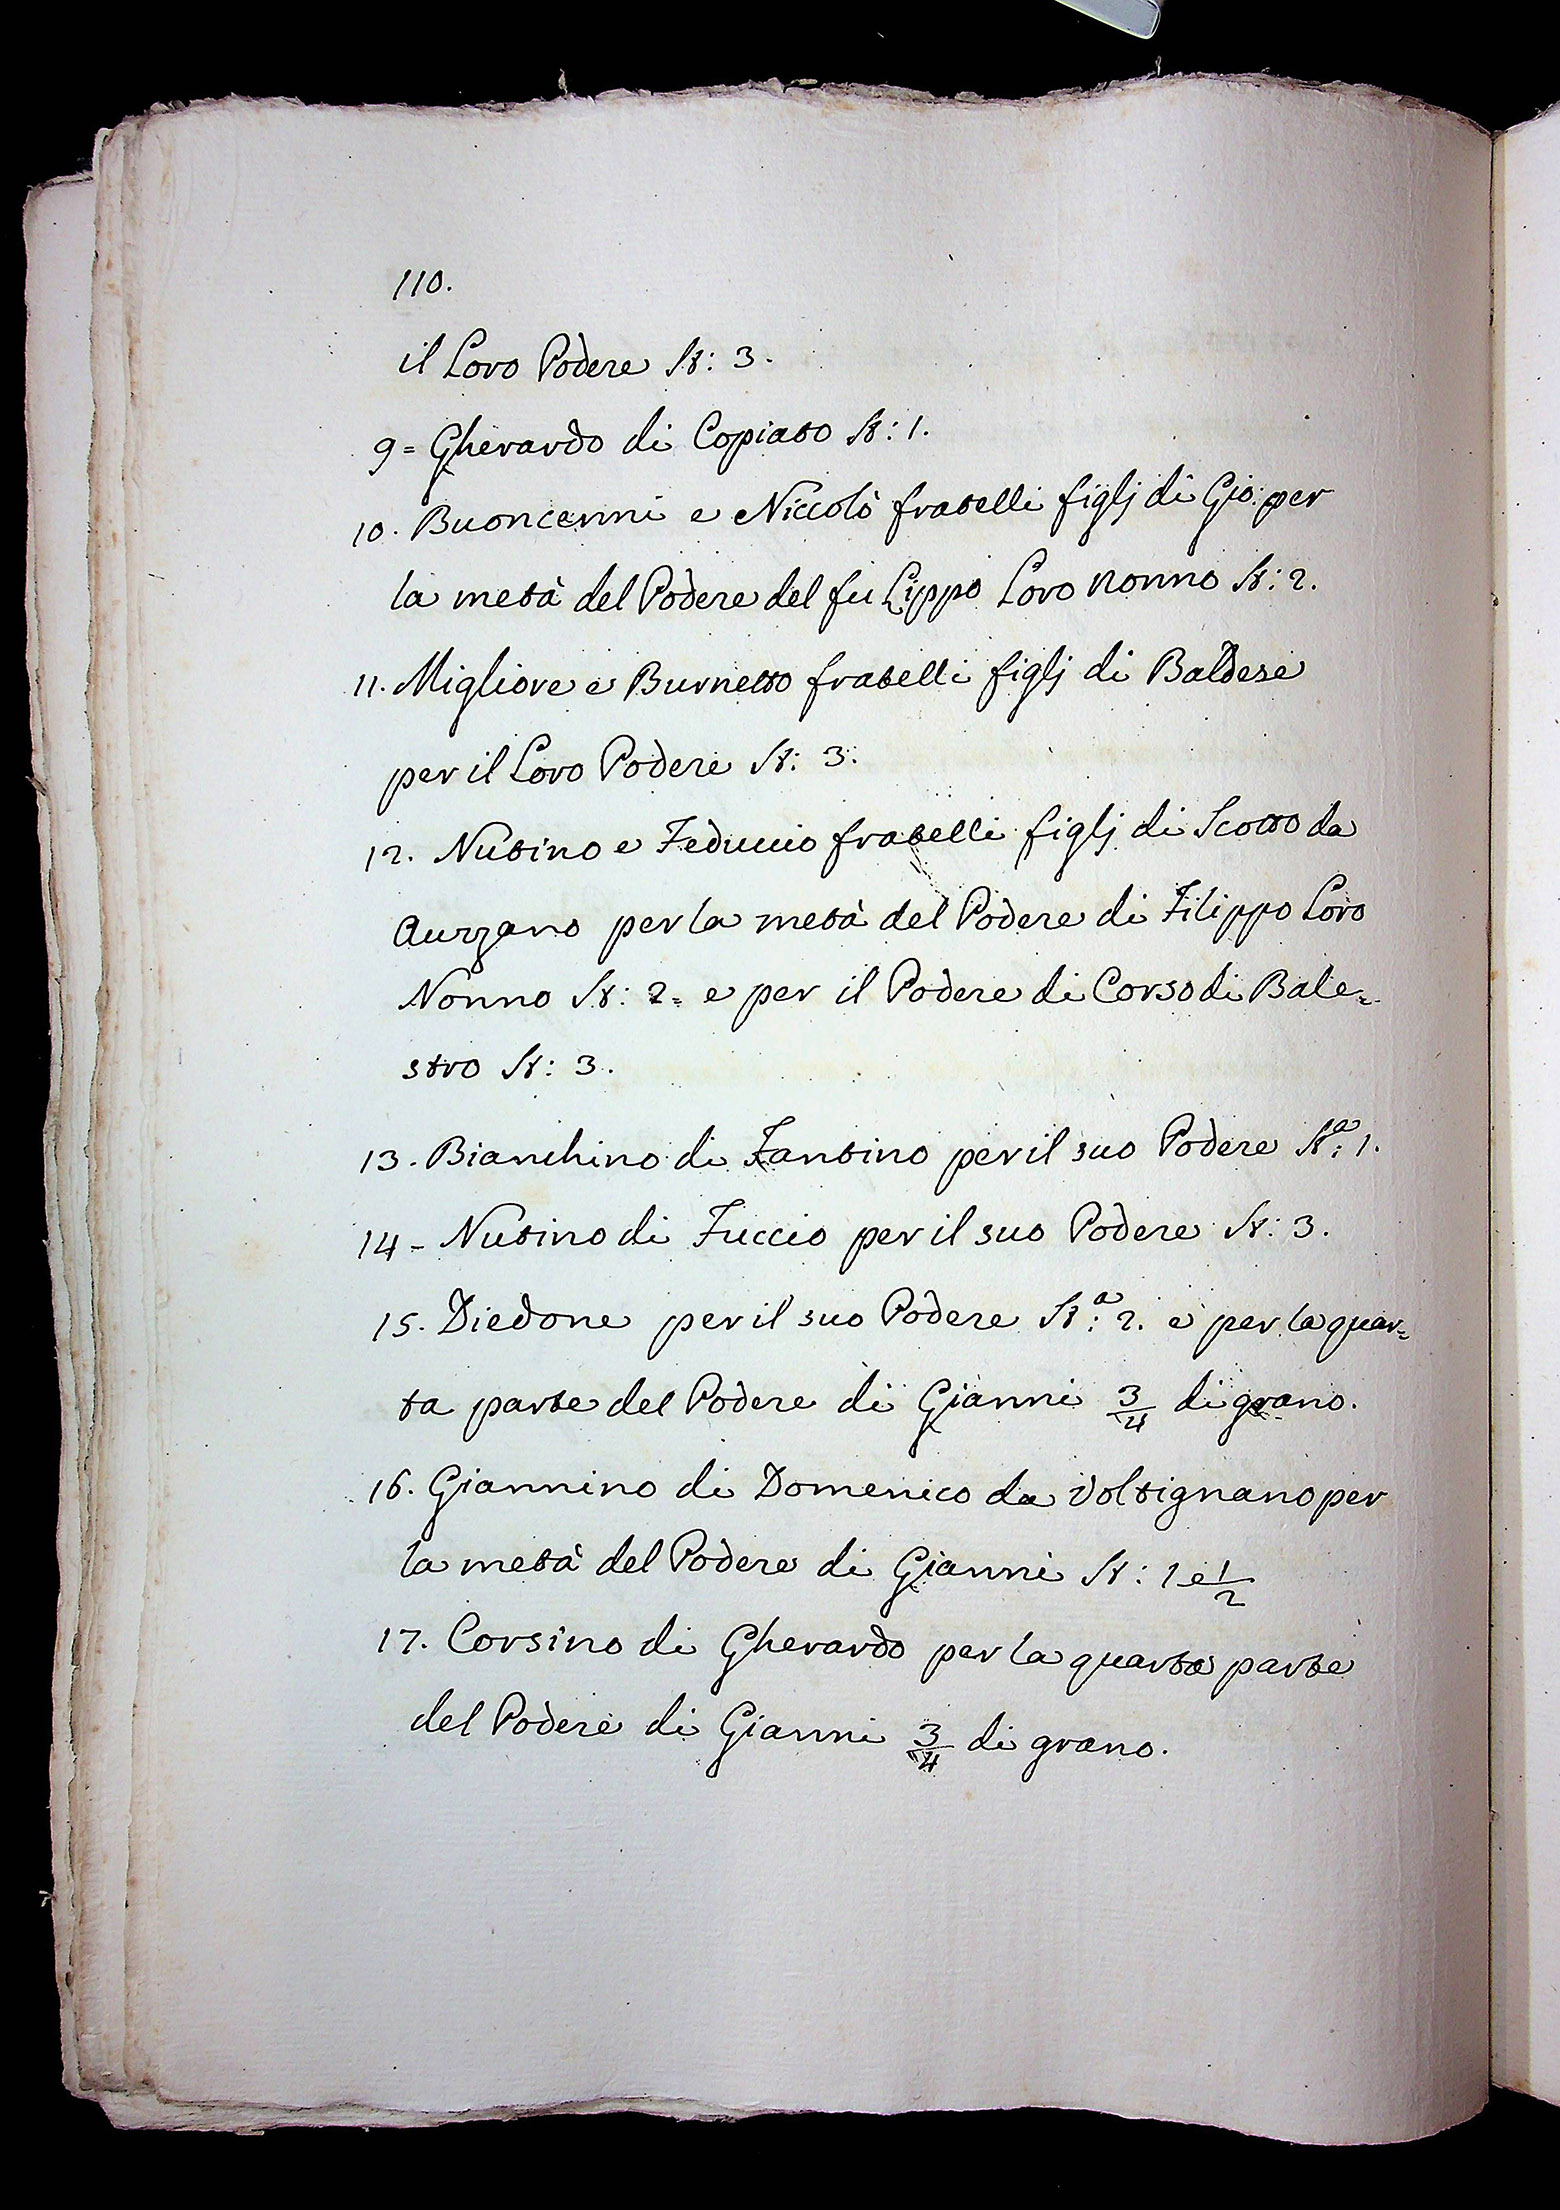 110.
il Loro Podere St: 3.
9= Gherardo di Copiato St: 1.
10. Buoncenni e Niccolò fratelli figlj di Gio: per
la metà del Podere del fu Lippo Loro nonno St: 2.
11. Migliore e Burnetto fratelli figlj di Baldese
per il Loro Podere St: 3.
12. Nutino e Feduccio fratelli figlj di Scotto da
Aurzano per la metà del Podere di Filippo Loro
Nonno St: 2= e per il Podere di Corso di Bale=
stro St: 3.
13. Bianchino di Fantino per il suo Podere St.ª 1.
14- Nutino di Fuccio per il suo Podere St: 3.
15. Diedone per il suo Podere St.ª 2. e per la quar=
ta parte del Podere di Gianni 3/4 di grano.
16. Giannino di Domenico da Voltignano per
la metà del Podere di Gianni St: 1 e 1/2
17. Corsino di Gherardo per la quarta parte
del Podere di Gianni 3/4 di grano.